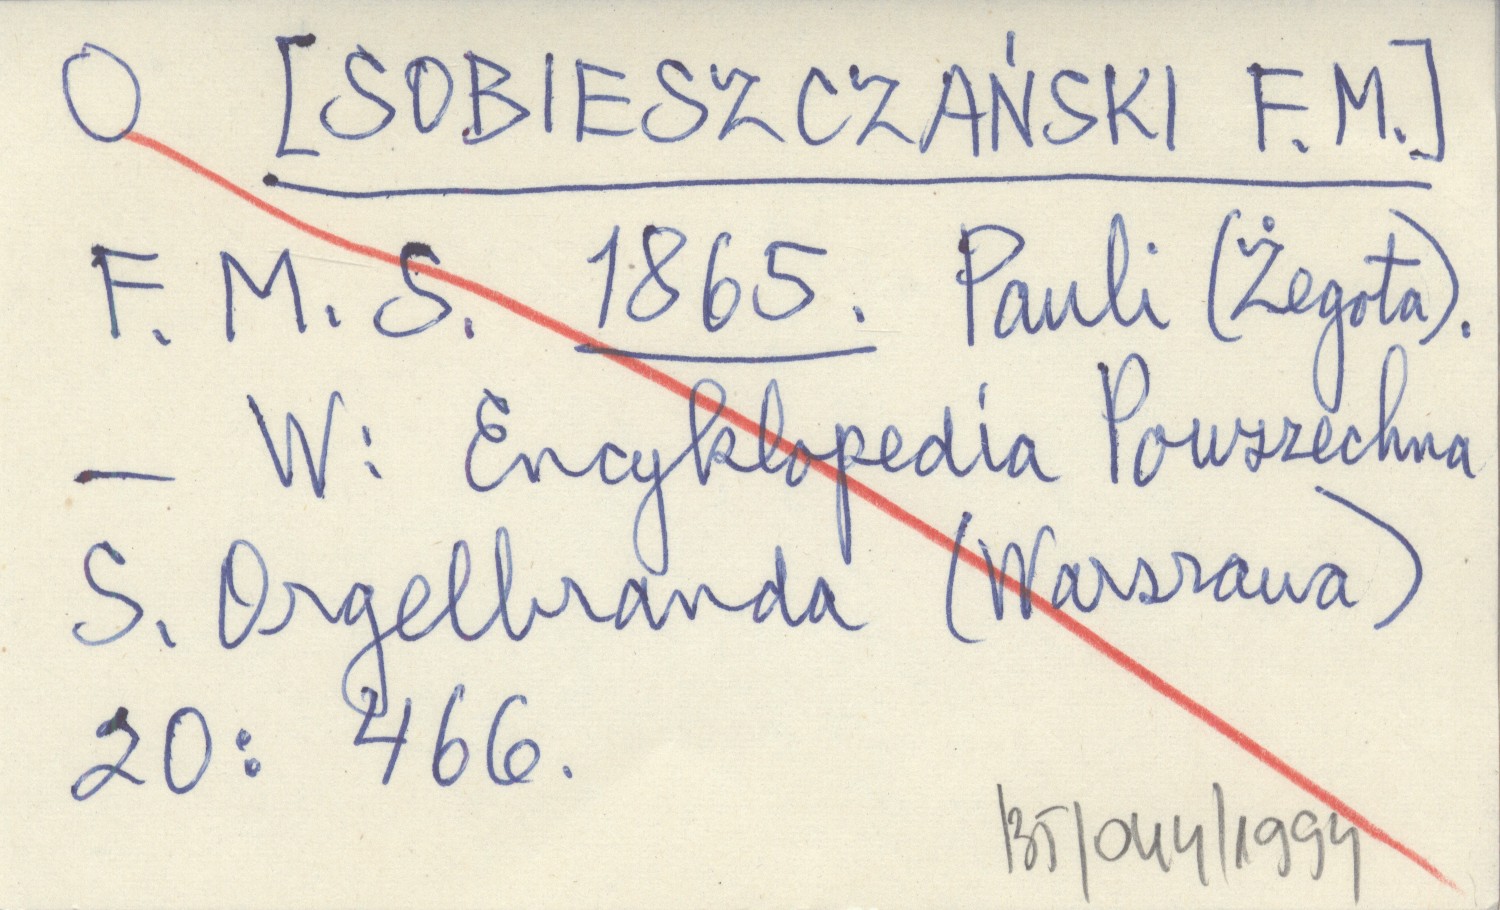 O [SOBIESZCZAŃSKI F.M.]
F. M. S. 1865. Pauli (Żegota).
— W: Encyklopedia Powszechna
S. Orgelbranda (Warszawa)
20: 466.